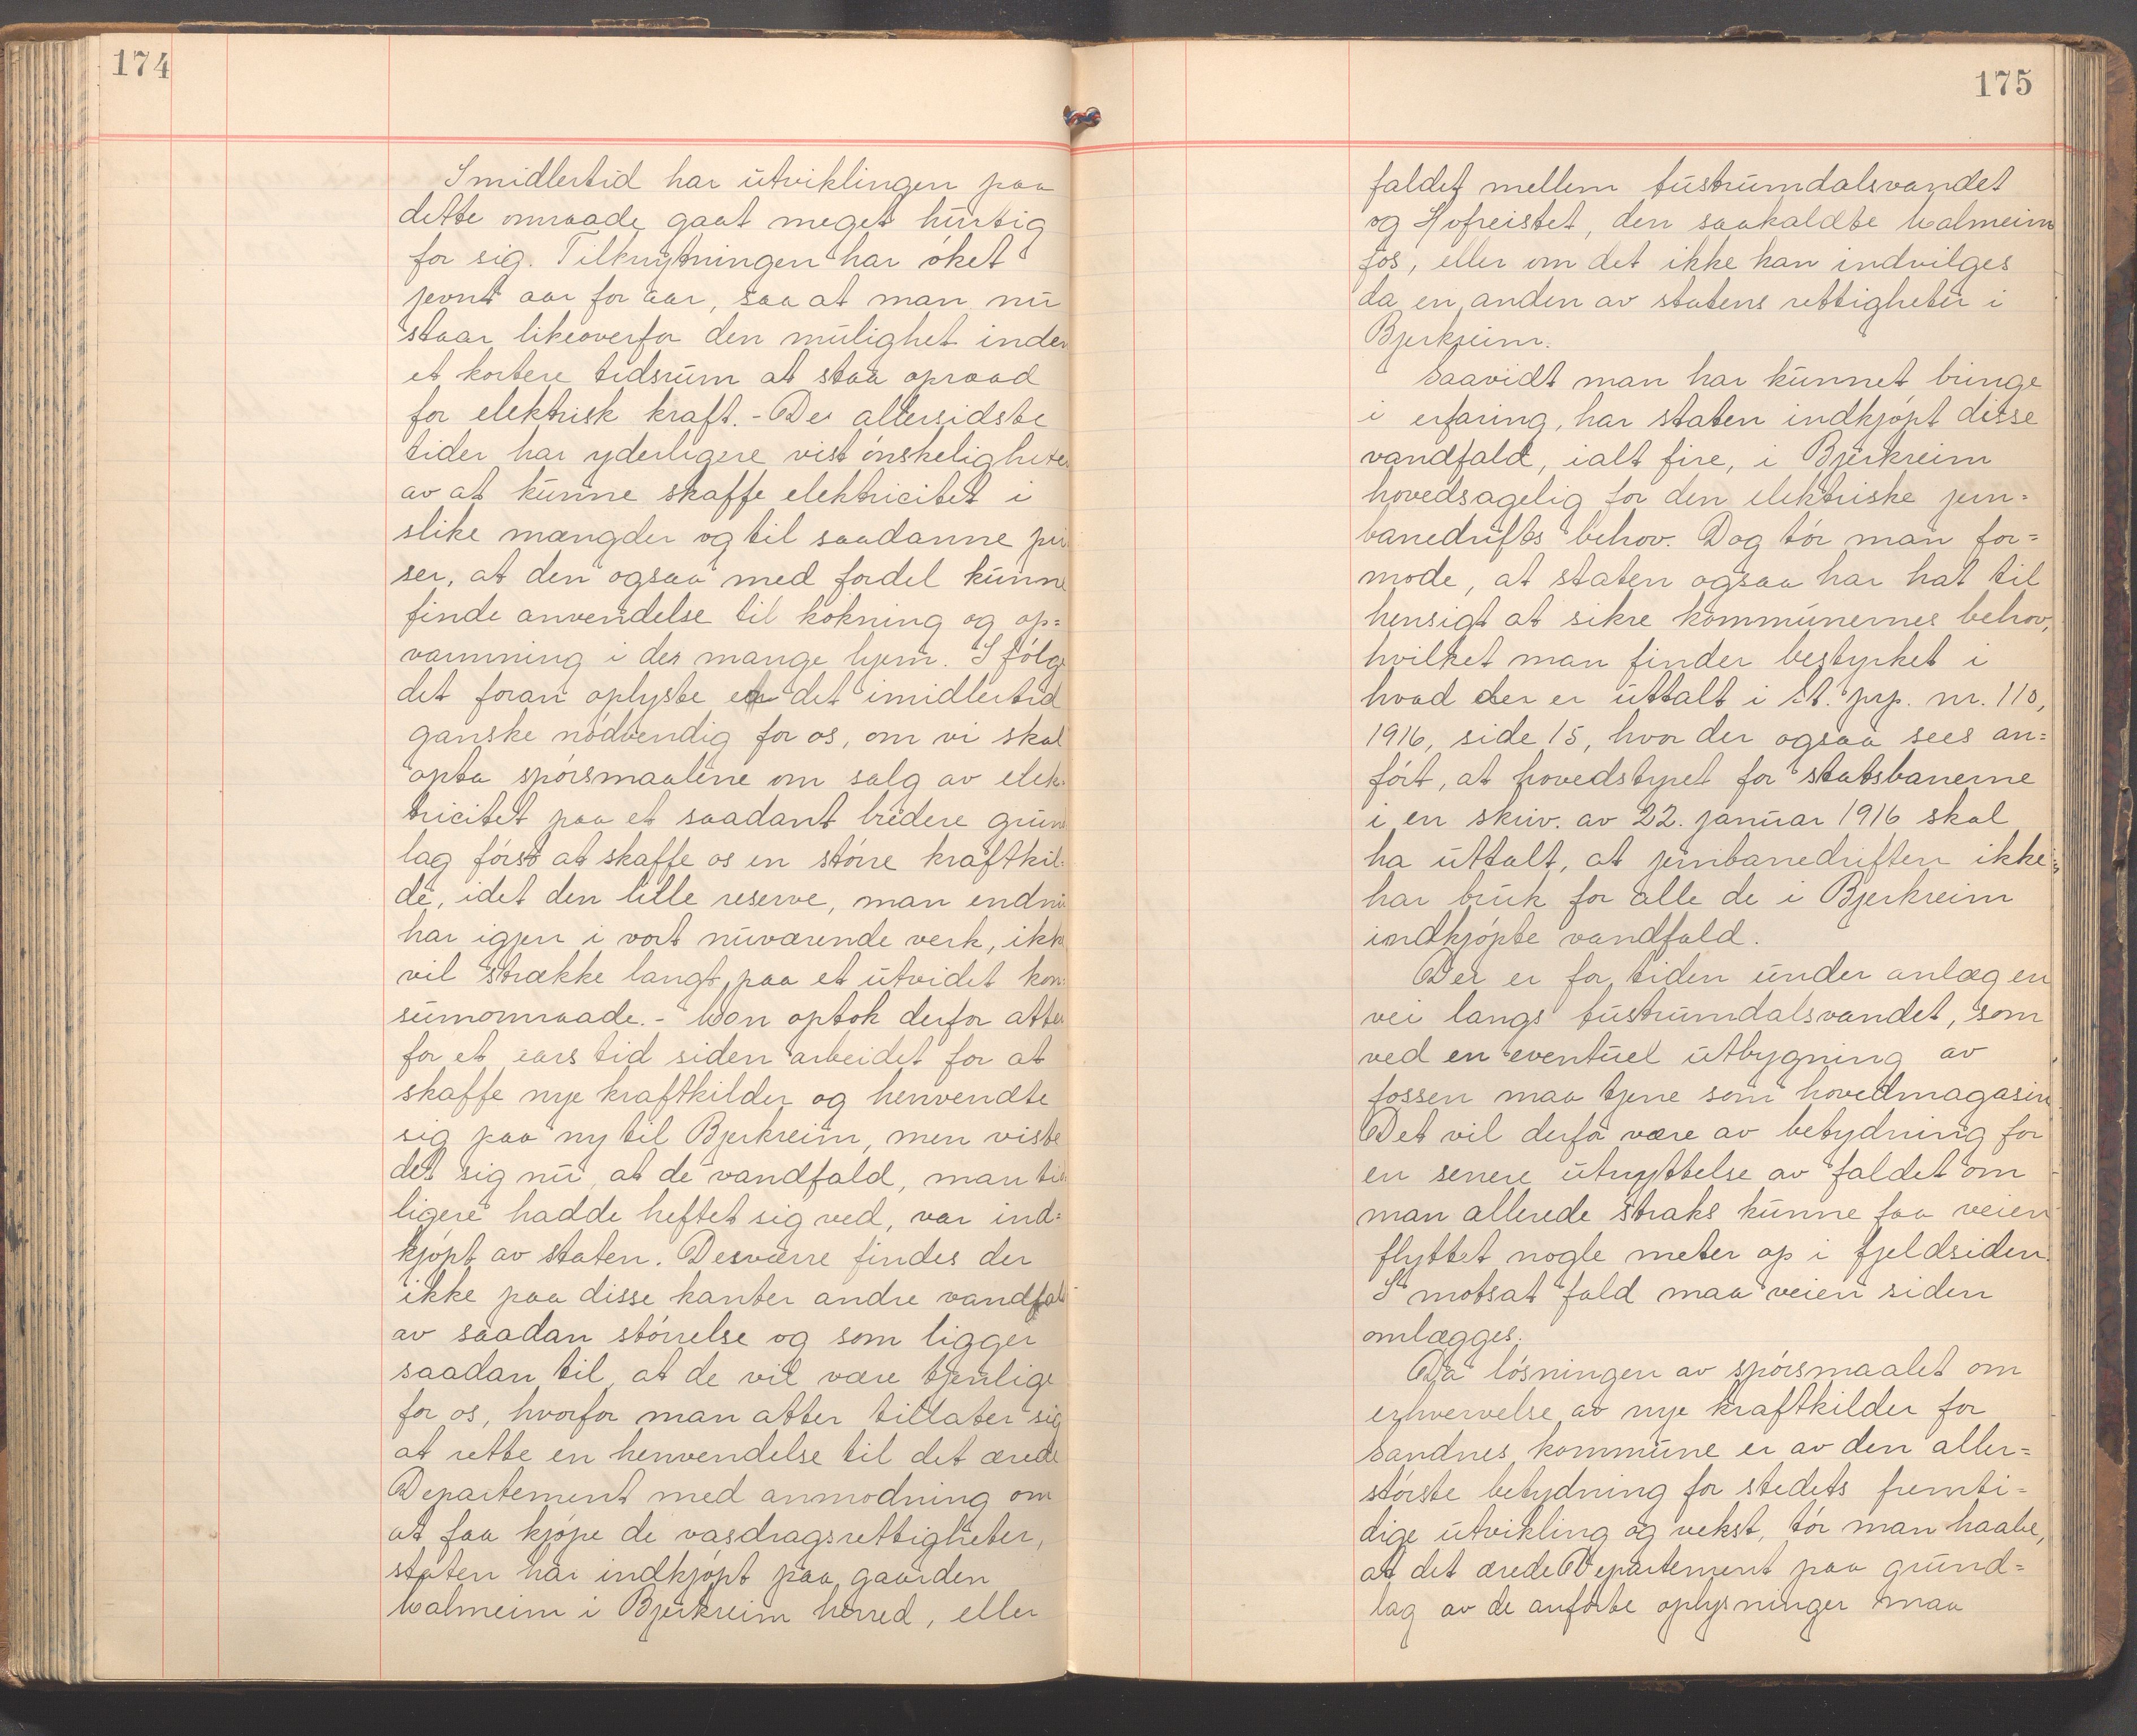 174
Imidlertid har utviklingen paa
dette omraade gaat meget hurtig
for sig. Tilknytningen har øket
jevnt aar for aar, saa at man nu
staar likeoverfor den mulighet inden
et kortere tidsrum at staa opraad
for elektrisk kraft. - De allersidste
tider har yderligere vist ønskeligheten
av at kunne skaffe elektricitet i
slike mængder og til saadanne pri
ser, at den ogsaa med fordel kunne
finde anvendelse til kokning og op=
varmning i de mange hjem. I følge
det foran oplyste er det imidlertid
ganske nødvendig for os, om vi skal
opta spørsmaalene om salg av elek=
tricitet paa et saadant bredere grund
lag først at skaffe os en større kraftkil=
de, idet den lille reserve, man endnu
har igjen i vort nuværende verk, ikke
vil strække langt paa et utvidet kon=
sumomraade. - Man optok derfor atter
for et aars tid siden arbeidet for at
skaffe nye kraftkilder og henvendte
sig paa ny til Bjerkreim, men viste
det sig nu, at de vandfald, man tid
ligere hadde heftet sig ved, var ind=
kjøpt av staten. Desværre findes der
ikke paa disse kanter andre vandfald
av saadan størrelse og som ligger
saadan til, at de vil være tjenlige
for os, hvorfor man atter tillater sig
at rette en henvendelse til det ærede
Departement med anmodning om
at faa kjøpe de vasdragsrettigheter,
staten har indkjøpt paa gaarden
Malmeim i Bjerkreim herred, eller
175
faldet mellem tustrumdalsvandet
og Hofreistet, den saakaldte Malmeim
fos, eller om det ikke kan indvilges
da en anden av statens rettigheter i
Bjerkreim.
Saavidt man har kunnet bringe
i erfaring, har staten indkjøpt disse
vandfald, ialt fire, i Bjerkreim
hovedsagelig for den elektriske jern=
banedrifts behov. Dog tør man for=
mode, at staten ogsaa har hat til
hensigt at sikre kommunernes behov,
hvilket man finder bestyrket i
hvad der er uttalt i St. prp. nr. 110,
1916, side 15, hvor der ogsaa sees an=
ført, at hovedstyret for statsbanerne
i en skriv. av 22. januar 1916 skal
ha uttalt, at jernbanedriften ikke
har bruk for alle de i Bjerkreim
indkjøpte vandfald.
Der er for tiden under anlæg en
vei langs tustrumdalsvandet, som
ved en eventuel utbygning av
fossen maa tjene som hovedmagasin
Det vil derfor være av betydning for
en senere utnyttelse av faldet om
man allerede straks kunne faa veien
flyttet nogle meter op i fjeldsiden.
I motsat fald maa veien siden
omlægges.
Da løsningen av spørsmaalet om
erhvervelse av nye kraftkilder for
Sandnes kommune er av den aller=
største betydning for stedets fremti=
dige utvikling og vekst, tør man haabe,
at det ærede Departement paa grund=
lag av de anførte oplysninger maa